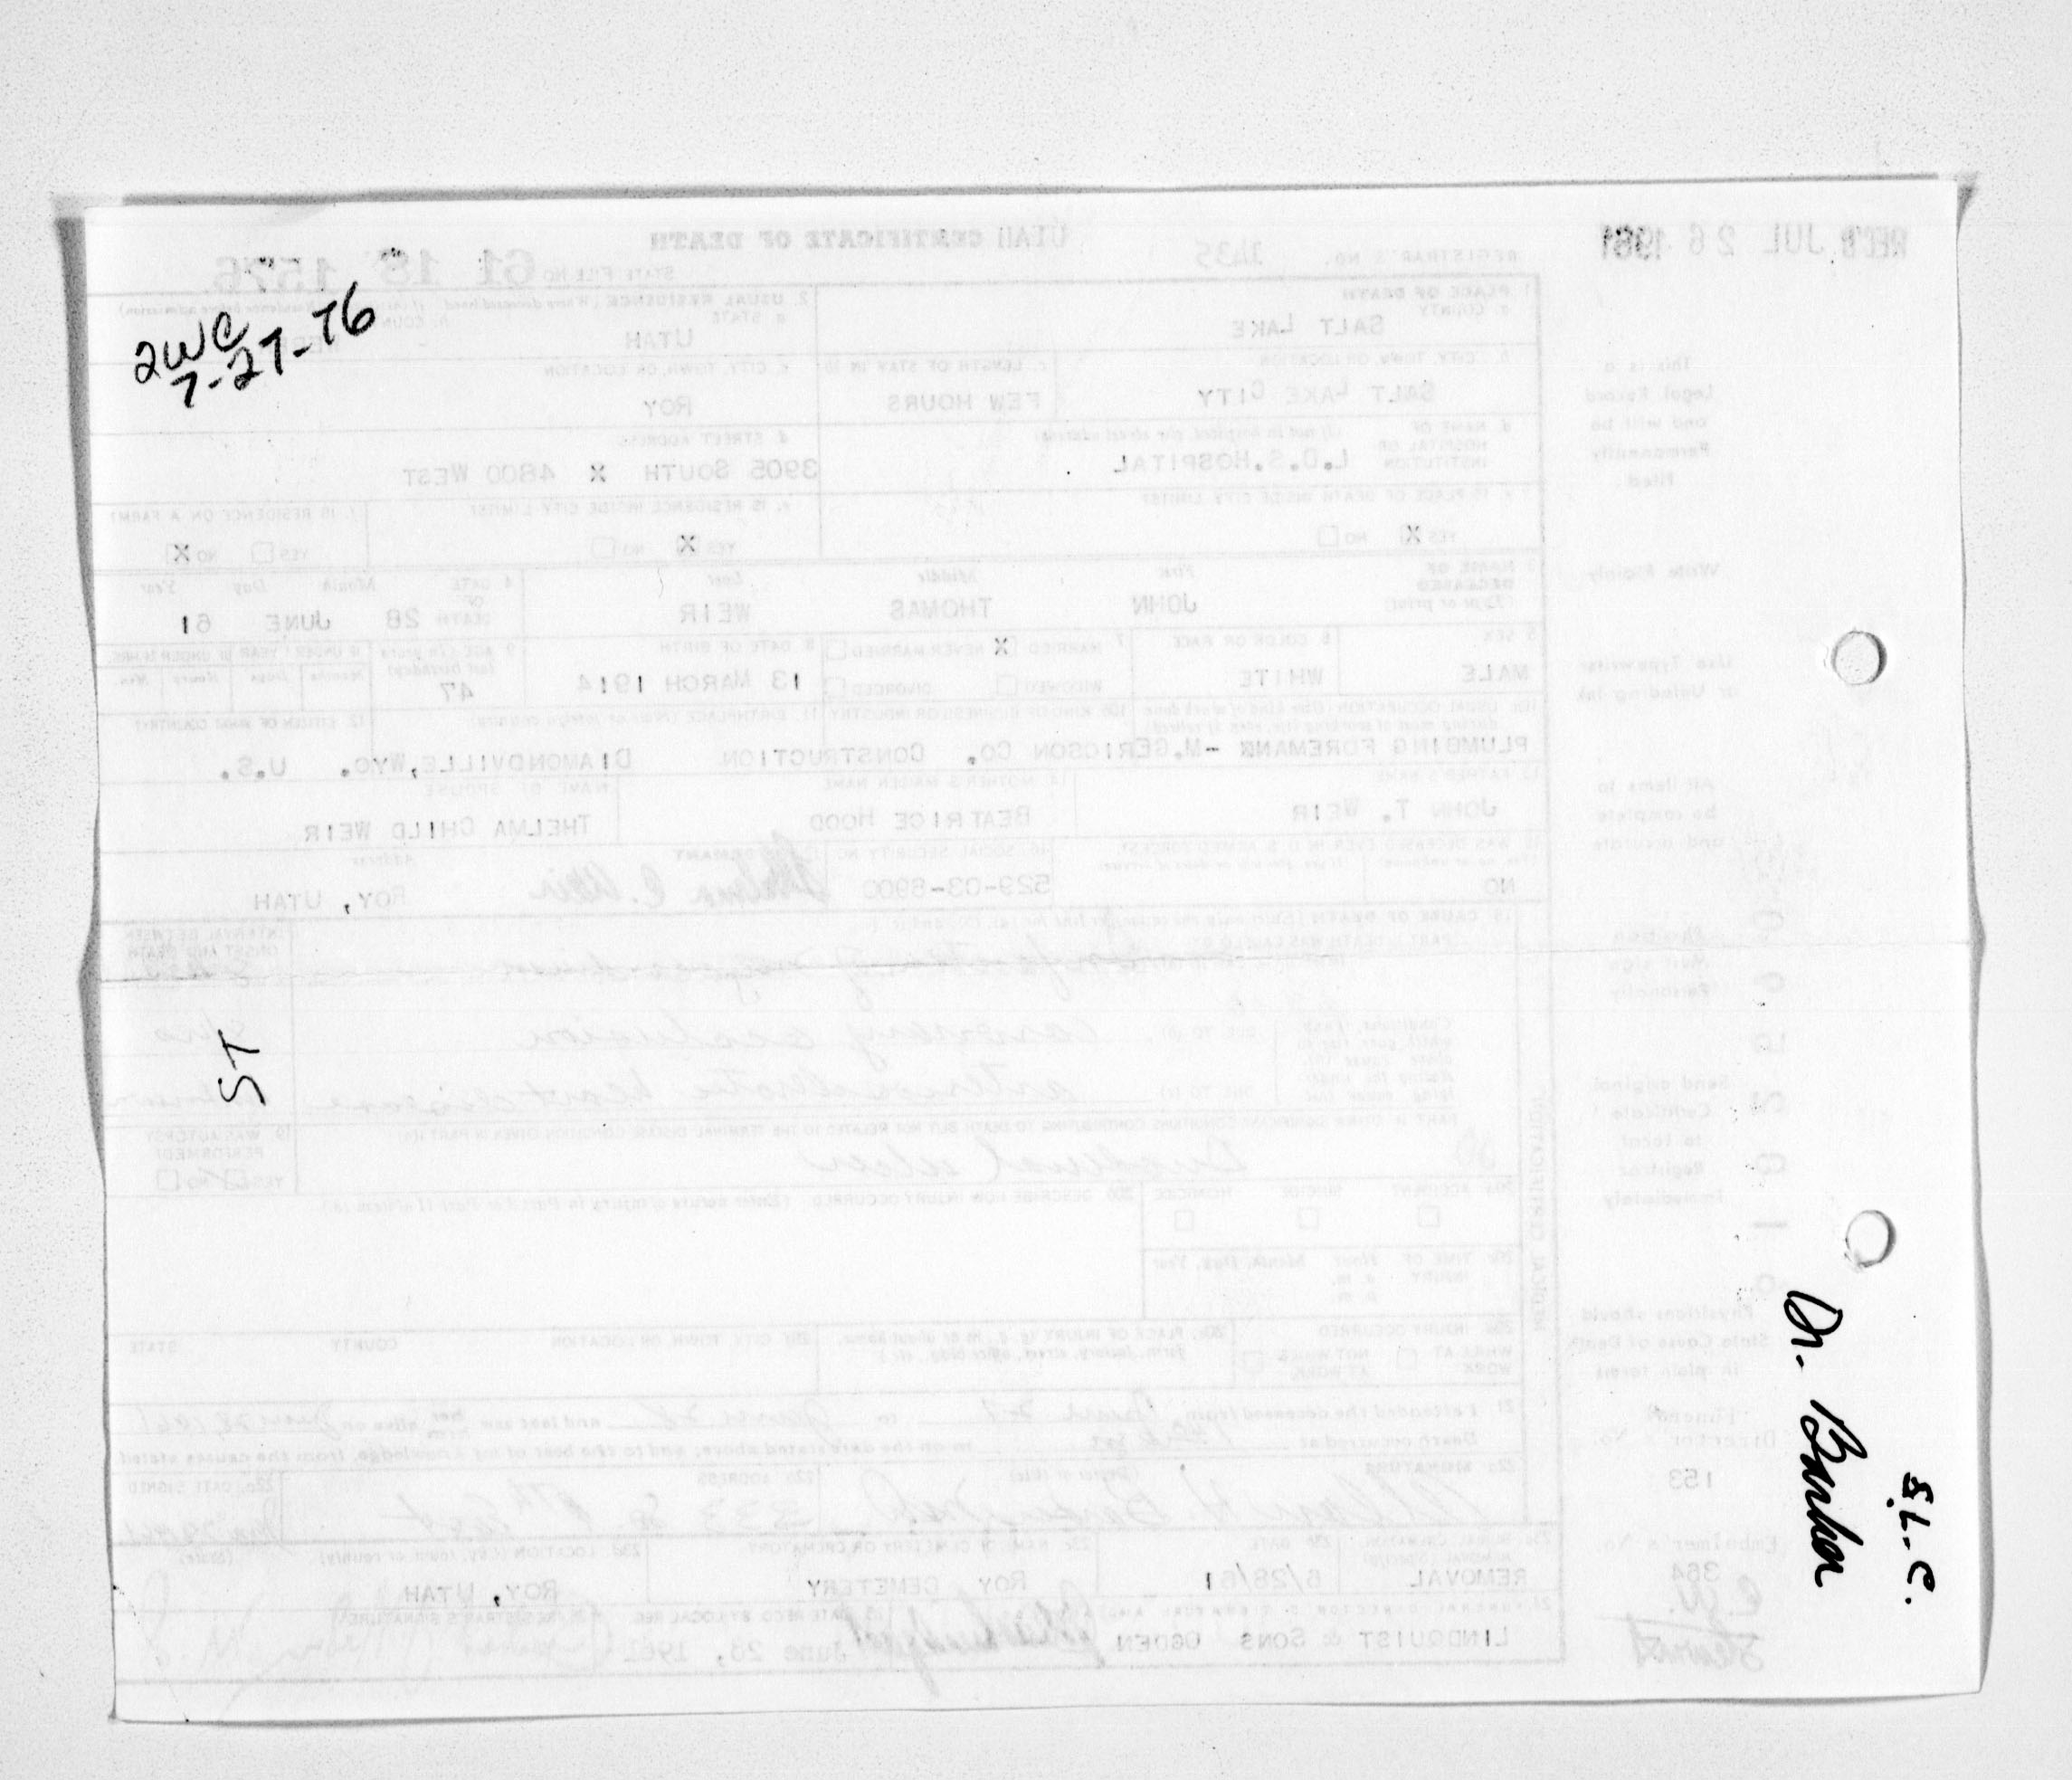 2WC
7-27-76
ST
Dr. Barker
S.L.C.
REC'D JUL 26 1961
REGISTRAR'S NO. 1435
UTAH CERTIFICATE OF DEATH
STATE FILE NO. 61 18 1576
1. PLACE OF DEATH
a. COUNTY
SALT LAKE
2. USUAL RESIDENCE (Where deceased lived.
a. STATE
UTAH
b. CITY, TOWN, OR LOCATION
SALT LAKE CITY
c. LENGTH OF STAY IN 1b
FEW HOURS
c. CITY, TOWN, OR LOCATION
ROY
d. NAME OF HOSPITAL OR INSTITUTION (If not in hospital, give street address)
L.D.S. HOSPITAL
d. STREET ADDRESS
3905 SOUTH X 4800 WEST
e. IS PLACE OF DEATH INSIDE CITY LIMITS?
YES X NO
e. IS RESIDENCE INSIDE CITY LIMITS?
YES X NO
f. IS RESIDENCE ON A FARM?
YES NO X
3. NAME OF DECEASED (Type or print)
First Middle Last
JOHN THOMAS WEIR
4. DATE OF DEATH Month Day Year
28 JUNE 61
5. SEX
MALE
6. COLOR OR RACE
WHITE
7. MARRIED X NEVER MARRIED
WIDOWED DIVORCED
8. DATE OF BIRTH
13 MARCH 1914
9. AGE (In years last birthday)
47
IF UNDER 1 YEAR IF UNDER 24 HRS.
Months Days Hours Min.
10a. USUAL OCCUPATION (Give kind of work done during most of working life, even if retired)
10b. KIND OF BUSINESS OR INDUSTRY
11. BIRTHPLACE (State or foreign country)
12. CITIZEN OF WHAT COUNTRY?
PLUMBING FOREMAN - M.GERICSON CO. CONSTRUCTION DIAMONDVILLE, WYO. U.S.
13. FATHER'S NAME
JOHN T. WEIR
14. MOTHER'S MAIDEN NAME
BEATRICE HOOD
NAME OF SPOUSE
THELMA CHILD WEIR
15. WAS DECEASED EVER IN U.S. ARMED FORCES?
NO
16. SOCIAL SECURITY NO.
529-03-6900
17. INFORMANT
Thelma C. Weir
Address
ROY, UTAH
18. CAUSE OF DEATH
PART I. DEATH WAS CAUSED BY:
INTERVAL BETWEEN ONSET AND DEATH
DUE TO (b) coronary occlusion
DUE TO (c) arteriosclerotic heart disease
PART II. OTHER SIGNIFICANT CONDITIONS CONTRIBUTING TO DEATH BUT NOT RELATED TO THE TERMINAL DISEASE CONDITION GIVEN IN PART I(a)
Duodenal ulcer
19. WAS AUTOPSY PERFORMED?
YES NO
20a. ACCIDENT SUICIDE HOMICIDE
20b. DESCRIBE HOW INJURY OCCURRED
20c. TIME OF INJURY Hour Month, Day, Year
a.m.
p.m.
20d. INJURY OCCURRED
WHILE AT WORK NOT WHILE AT WORK
20e. PLACE OF INJURY (e.g., in or about home, farm, factory, street, office bldg., etc.)
20f. CITY, TOWN, OR LOCATION COUNTY STATE
21. I attended the deceased from to June 28 and last saw him alive on June 28, 1961
Death occurred at m on the date stated above; and to the best of my knowledge, from the causes stated
22a. SIGNATURE (Degree or title)
22b. ADDRESS
22c. DATE SIGNED
23a. BURIAL, CREMATION, REMOVAL (Specify)
REMOVAL
23b. DATE
6/28/61
23c. NAME OF CEMETERY OR CREMATORY
ROY CEMETERY
23d. LOCATION (City, town, or county) (State)
ROY, UTAH
LINDQUIST & SONS OGDEN
DATE REC'D BY LOCAL REG.
June 28, 1961
REGISTRAR'S SIGNATURE
MEDICAL CERTIFICATION
This is a
Legal Record
and will be
Permanently
Filed.
Write Plainly
Use Typewriter
or Unfading Ink
All items to
be complete
and accurate
Physician
Must sign
Personally
Send original
Certificate
to local
Registrar
Immediately
Physicians should
State Cause of Death
in plain terms
Funeral
Director's No.
153
Embalmer's No.
364